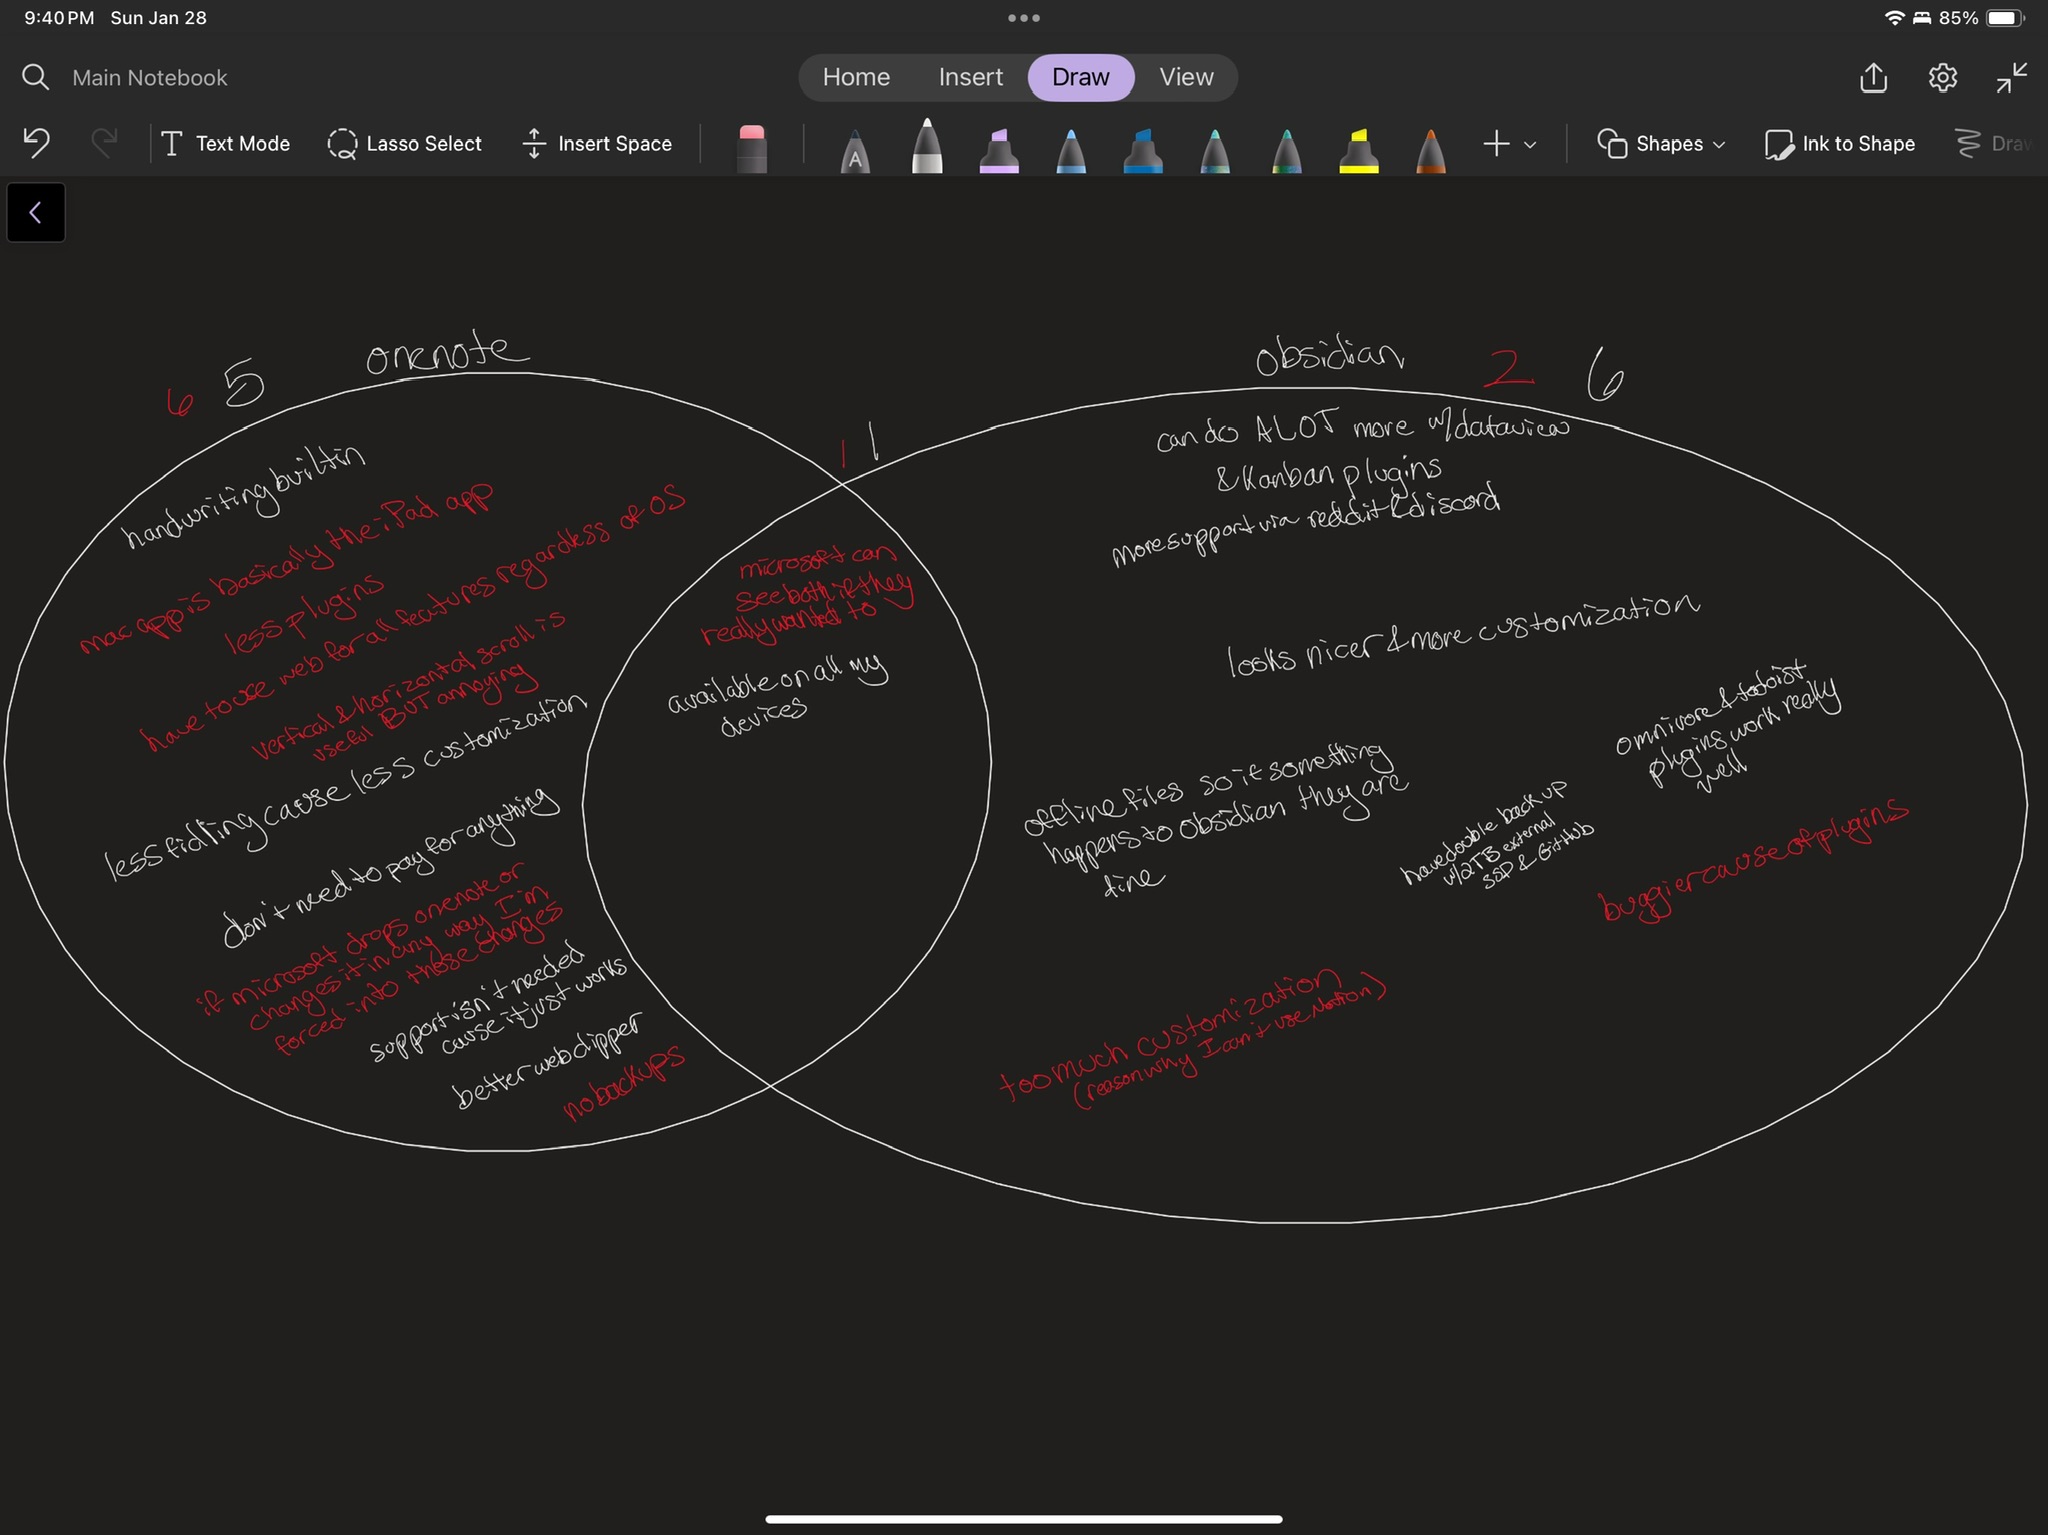 9:40 PM Sun Jan 28
85%
Main Notebook
Home
Insert
Draw
View
Text Mode
Lasso Select
Insert Space
A
Shapes
Ink to Shape
Draw
6 5 onenote
handwriting built in
mac app is basically the iPad app
less plugins
have to use web for all features regardless of OS
vertical & horizontal scroll is
useful BUT annoying
less fidlling cause less customization
don't need to pay for anything
if microsoft drops onenote or
changes it in any way I'm
forced into those changes
support isn't needed
cause it just works
better web clipper
no backups
1 1
microsoft can
see both if they
really wanted to
available on all my
devices
Obsidian 2 6
can do ALOT more w/dataview
& Kanban plugins
more support via reddit & discord
looks nicer & more customization
omnivore & todoist
plugins work really
well
offline files so if something
happens to Obsidian they are
fine
have double backup
w/ 2TB external
SSD & GitHub
buggier cause of plugins
too much customization
(reason why I can't use Notion)